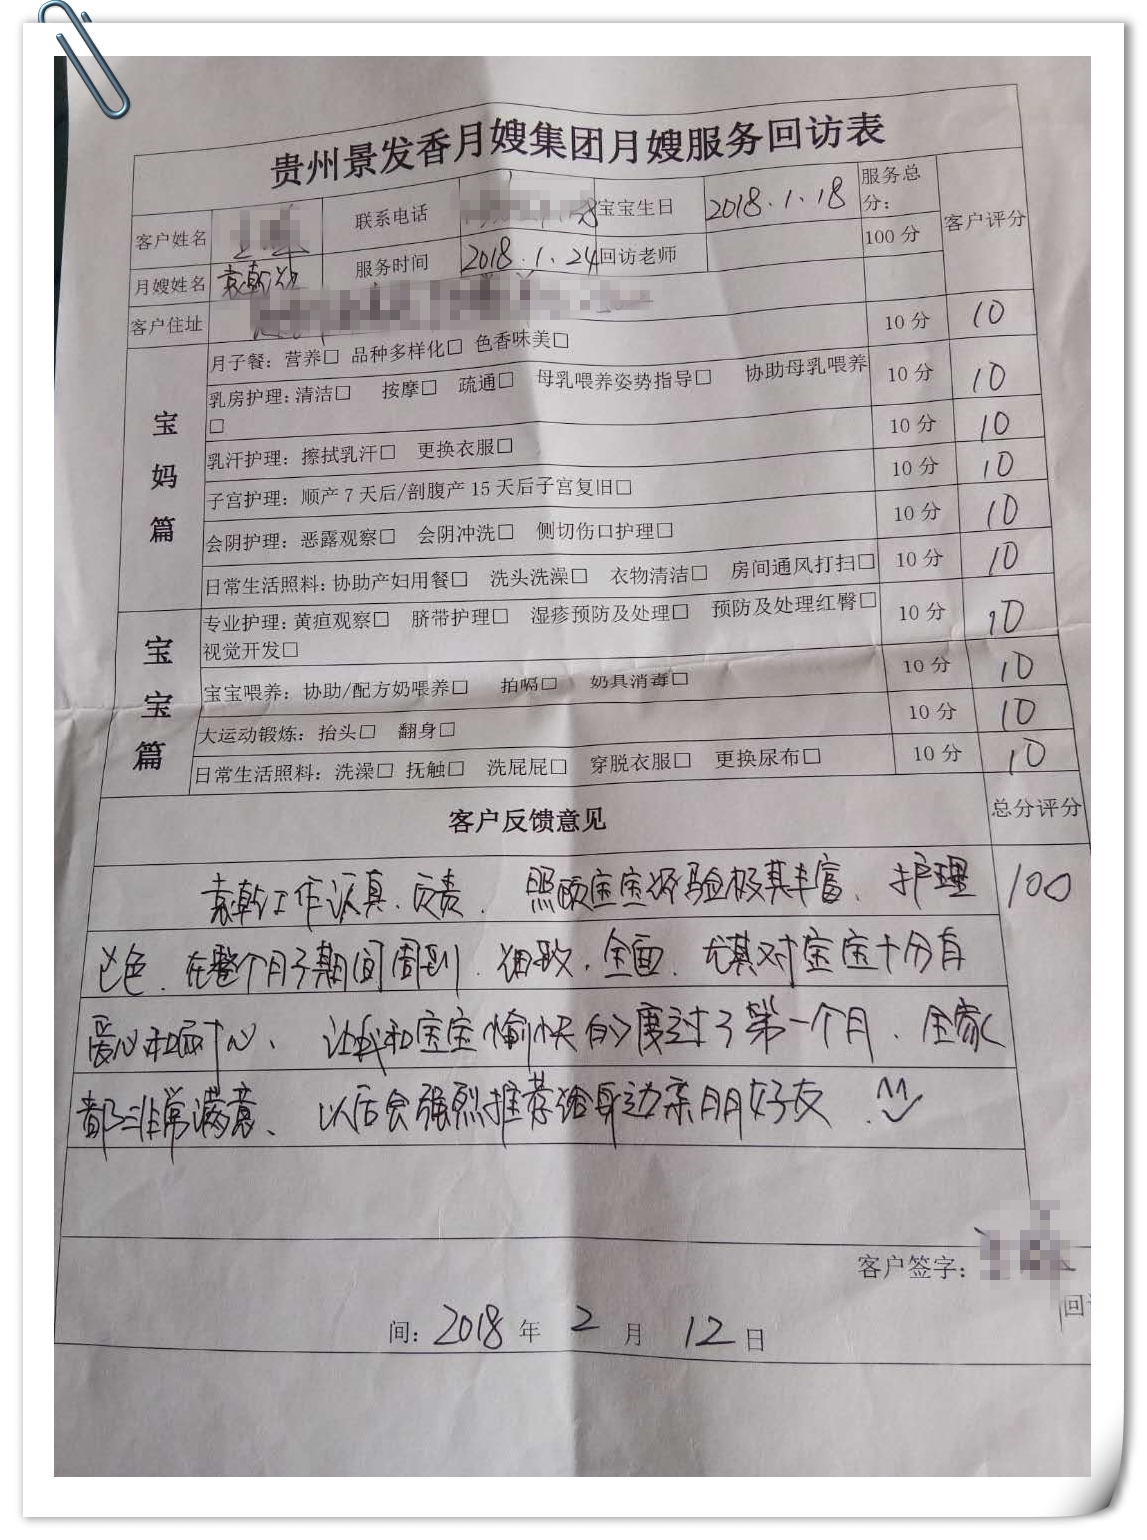 贵州景发香月嫂集团月嫂服务回访表
客户姓名 联系电话 宝宝生日 2018.1.18 服务总分: 100分 客户评分
月嫂姓名 袁乾 服务时间 2018.1.24 回访老师
客户住址
宝妈篇
月子餐：营养□ 品种多样化□ 色香味美□ 10分 10
乳房护理：清洁□ 按摩□ 疏通□ 母乳喂养姿势指导□ 协助母乳喂养 10分 10
□
乳汗护理：擦拭乳汗□ 更换衣服□ 10分 10
子宫护理：顺产7天后/剖腹产15天后子宫复旧□ 10分 10
会阴护理：恶露观察□ 会阴冲洗□ 侧切伤口护理□ 10分 10
日常生活照料：协助产妇用餐□ 洗头洗澡□ 衣物清洁□ 房间通风打扫□ 10分 10
宝宝篇
专业护理：黄疸观察□ 脐带护理□ 湿疹预防及处理□ 预防及处理红臀□ 10分 10
视觉开发□
宝宝喂养：协助/配方奶喂养□ 拍嗝□ 奶具消毒□ 10分 10
大运动锻炼：抬头□ 翻身□ 10分 10
日常生活照料：洗澡□ 抚触□ 洗屁屁□ 穿脱衣服□ 更换尿布□ 10分 10
客户反馈意见 总分评分
袁乾工作认真、负责、照顾宝宝经验极其丰富、护理 100
出色、在整个月子期间周到、细致、全面、尤其对宝宝十分有
爱心和耐心、让我和宝宝愉快的度过了第一个月、全家
都非常满意、以后会强烈推荐给身边亲朋好友
客户签字：
回
间：2018年2月12日